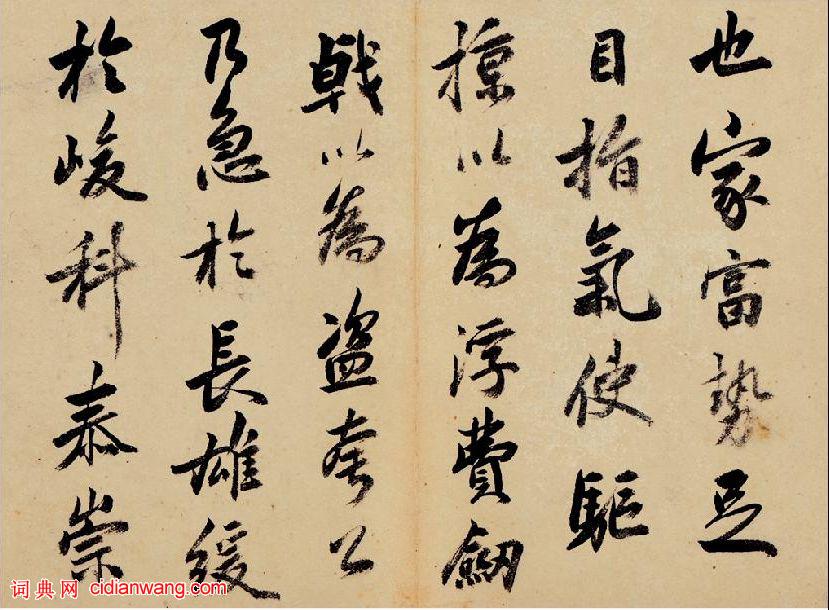 也家富勢足
目指氣使驅
掠以為浮費劒
戟以為盜夸公
乃急於長雄緩
於峻科恭崇
词典网 cidianwang.com